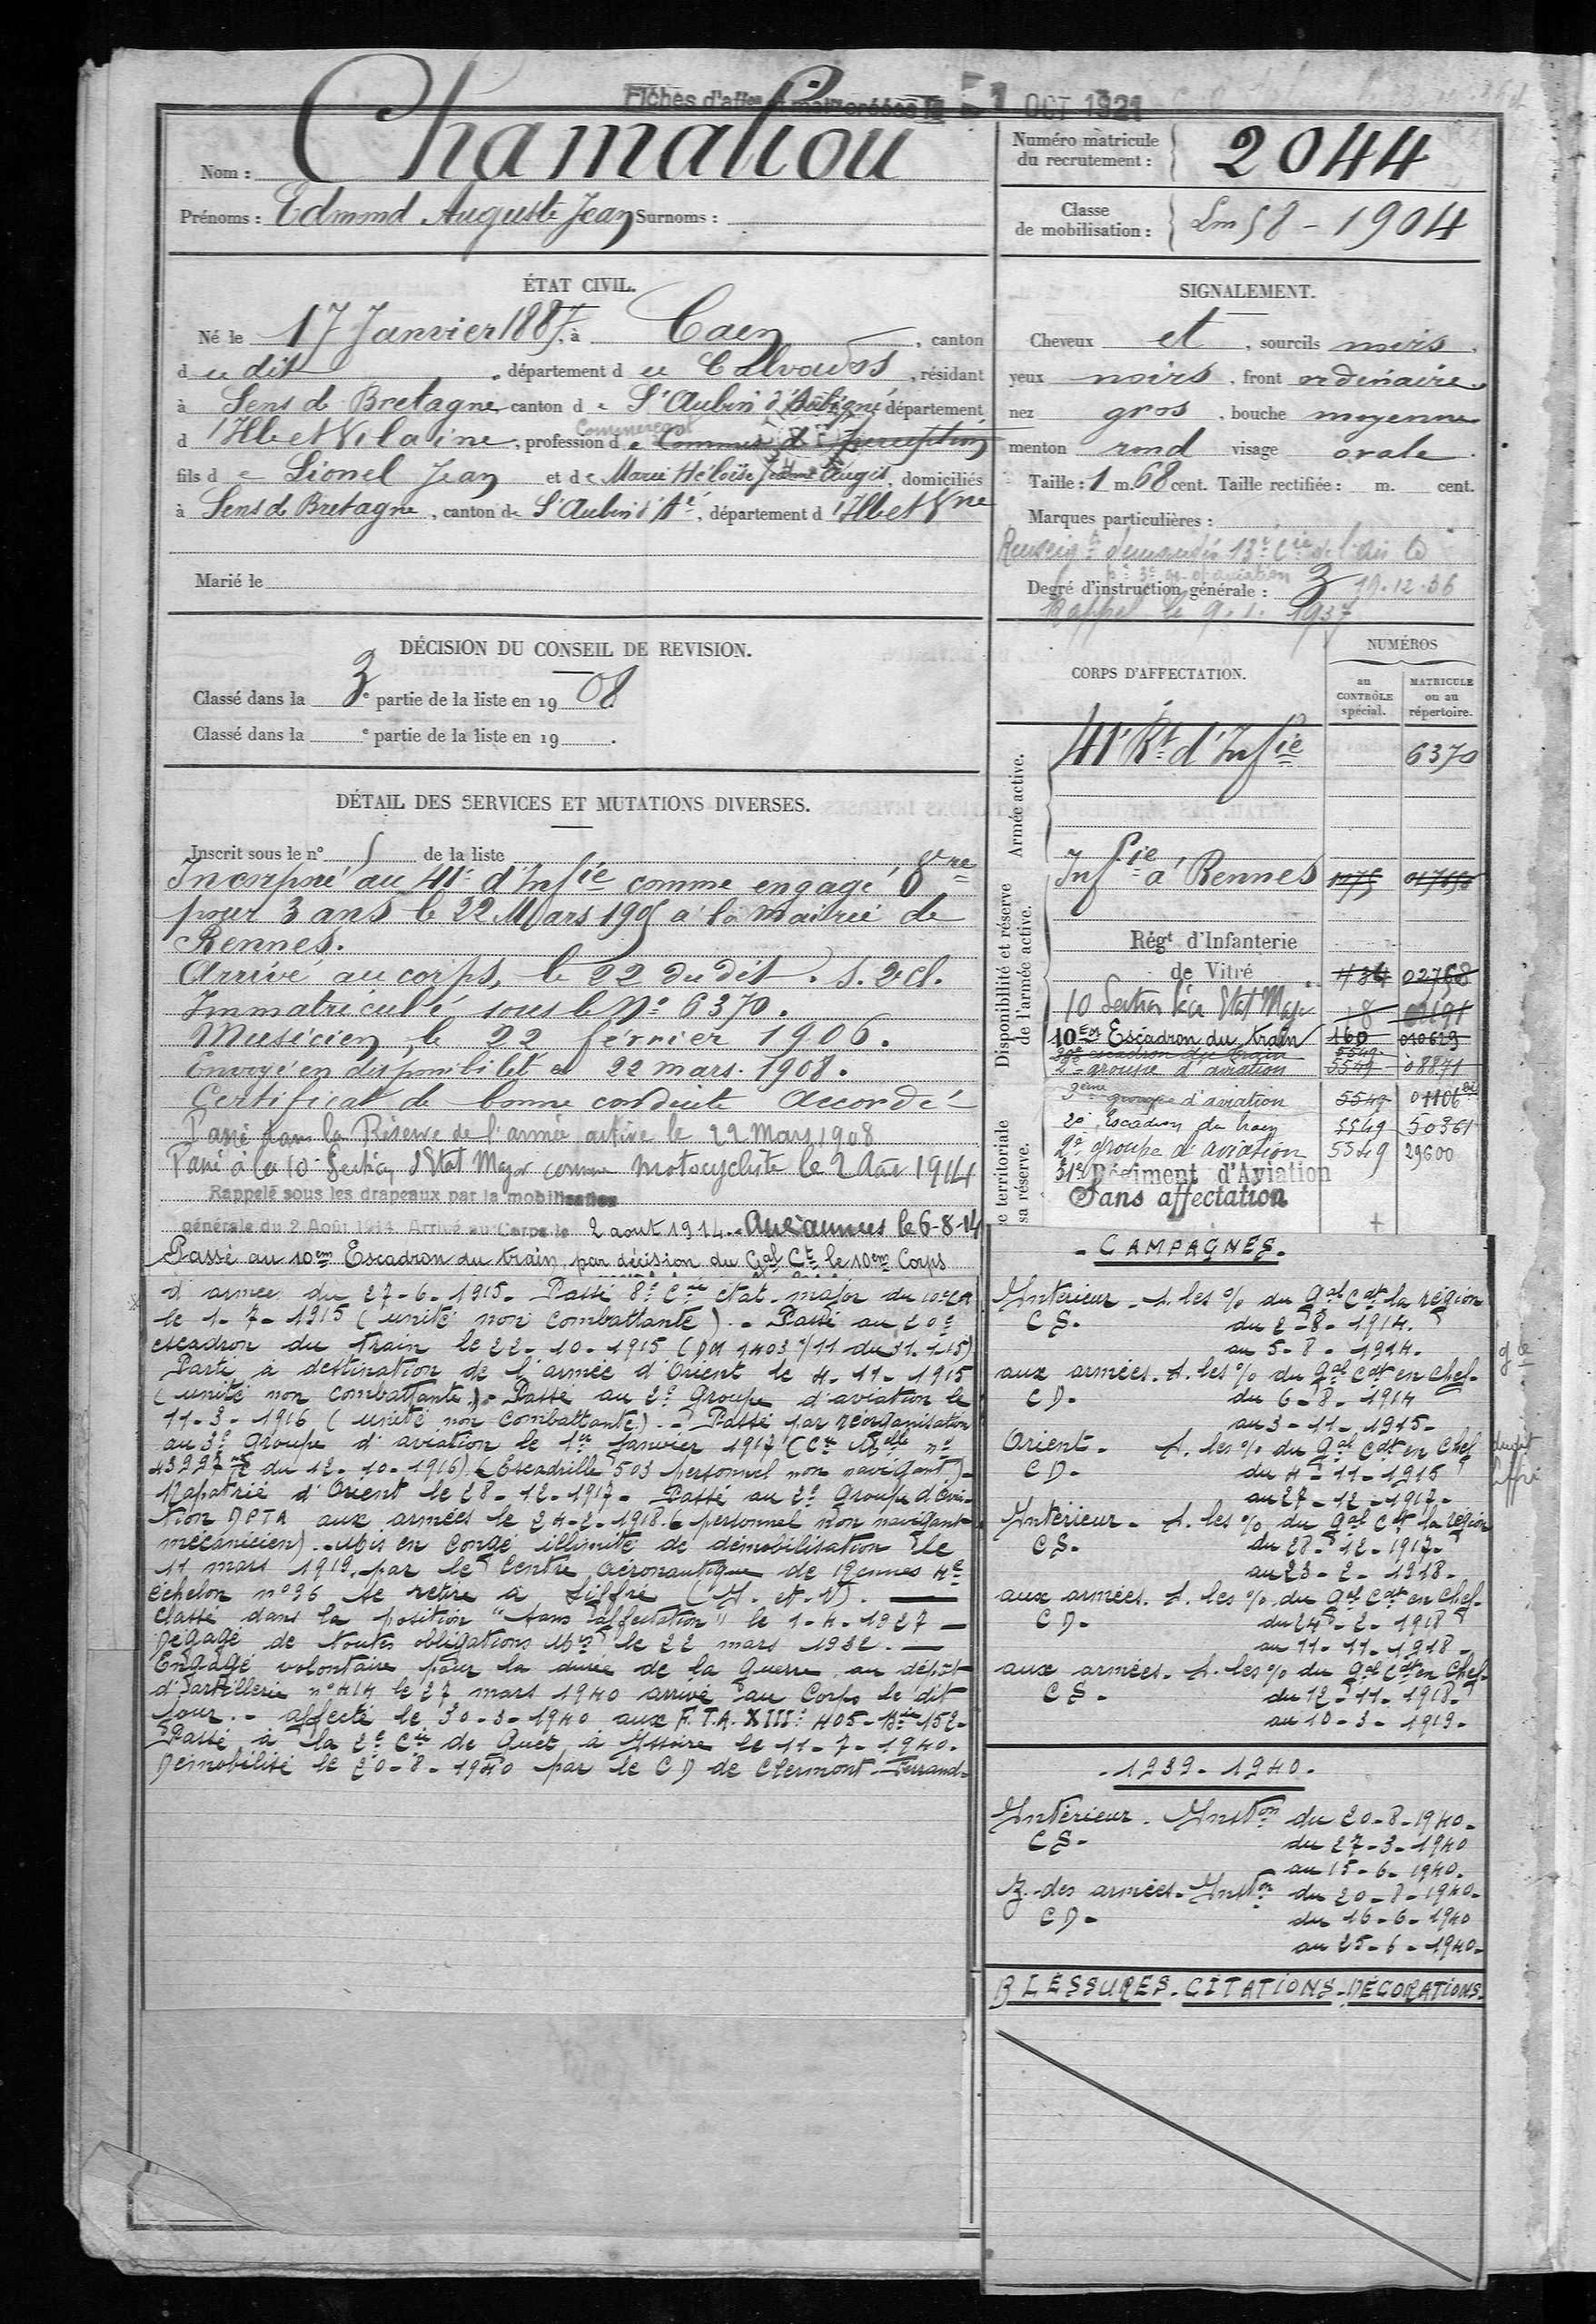 Fiches d'aff<sup>on</sup> OCT 1921
Nom : Chamaliou
Prénoms : Edmond Auguste Jean Surnoms :
Numéro matricule
du recrutement : 2044
Classe
de mobilisation : 1904
ÉTAT CIVIL.
Né le 17 Janvier 1887, à Caen, canton
d u dit, département d u Calvados, résidant
à Sens de Bretagne canton d e St Aubin d'Aubigné département
Commerçant
d 'Ille et Vilaine, profession d e Commis de perception
fils d e Lionel Jean et d e Marie Héloïse Augis, domiciliés
à Sens de Bretagne, canton de St Aubin d'Ané, département d 'Ille et Vne
Marié le
DÉCISION DU CONSEIL DE REVISION.
Classé dans la 3e partie de la liste en 1908.
Classé dans la e partie de la liste en 19 .
DÉTAIL DES SERVICES ET MUTATIONS DIVERSES.
Inscrit sous le n° de la liste
Incorporé au 41e d'Infie comme engagé
pour 3 ans le 22 Mars 1905 à la mairie de
Rennes.
Arrivé au corps, le 22 du dit. s. 2e cl.
Immatriculé sous le No 6370.
Musicien, le 22 février 1906.
Envoyé en disponibilité le 22 mars 1908.
Certificat de bonne conduite Accordé
Passé dans la Réserve de l'armée active le 22 Mars 1908
Passé à la 10e Section d'Etat Major comme motocycliste le 2 Août 1914
Rappelé sous les drapeaux par la mobilisation
générale du 2 Août 1914. Arrivé au Corps le 2 aout 1914. Aux armées le 6-8-14
Passé au 10em Escadron du train par décision du Gal Ct le 10em Corps
d'armée du 27-6-1915. Passé 8e Cie état-major du 10e CA
le 1-7-1915 (unité non combattante). Passé au 20e
escadron du train le 22-10-1915 (DM 1403 /11 du
Parti à destination de l'armée d'Orient le 4-11-1915
(unité non combattante). Passé au 2e Groupe d'aviation le
11-3-1916 (unité non combattante). Passé par réorganisation
au 3e Groupe d'aviation le 1er Janvier 1917 (Cre Melle no
du 12-10-1916) (Escadrille 503 personnel non navigant).
Rapatrié d'Orient le 28-12-1917. Passé au 2e Groupe d'avia-
tion aux armées le 24-2-1918 (personnel non navigant
mécanicien). Mis en congé illimité de démobilisation le
11 mars 1919, par le Centre aéronautique de Rennes 4e
échelon no 96 se retire à Liffré (I. et. V).
Classé dans la position "sans affectation" le 1-4-1927
Dégagé de toutes obligations Mres le 22 mars 1932.
Engagé volontaire pour la durée de la guerre au dépôt
d'artillerie no 414 le 27 mars 1940 arrivé au Corps le dit
jour. affecté le 30-3-1940 aux F.T.A. XIIIe 405-Bie 152.
Passé à la 2e Cie de Guet à Issoire le 11-7-1940.
Démobilisé le 20-8-1940 par le CD de Clermont-Ferrand.
SIGNALEMENT.
Cheveux et, sourcils noirs,
yeux noirs, front ordinaire,
nez gros, bouche moyenne
menton rond visage ovale.
Taille : 1 m. 68 cent. Taille rectifiée : m. cent.
Marques particulières :
Renseigts demandés 13e Cie de l'Air
Degré d'instruction générale : 3 19.12.36
Rappel le 9.1.1937
CORPS D'AFFECTATION.
NUMÉROS
au
CONTRÔLE
spécial.
MATRICULE
ou au
répertoire.
Armée active.
41e Rt d'Infie 6370
Disponibilité et réserve
de l'armée active.
Infie à Rennes 1175
Régt d'Infanterie
de Vitré 434 02768
10 Section d'Etat Major 8
10em Escadron du train 160 010629
20e escadron du train 5549
2e groupe d'aviation 5549 08871
e territoriale
sa réserve.
3ème groupe d'aviation 5549 01106
20e Escadron du train 5549 50361
2e groupe d'aviation 5549 29600
31e Régiment d'Aviation
Sans affectation
- CAMPAGNES -
Intérieur - s. les % du Gal Cdt la région
CS. du 2-8-1914.
au 5-8-1914.
aux armées. s. les % du Gal Cdt en chef.
CD. du 6-8-1914
au 3-11-1915.
Orient. s. les % du Gal Cdt en Chef
CD. du 4-11-1915
au 27-12-1917.
Intérieur. s. les % du Gal Cdt la région
CS. du 28-12-1917.
au 23-2-1918.
aux armées. s. les % du Gal Cdt en chef.
CD. du 24-2-1918
au 11-11-1918.
aux armées. s. les % du Gal Cdt en chef.
CS. du 12-11-1918.
au 10-3-1919.
- 1939-1940 -
Intérieur. Inston du 20-8-1940.
CS. du 27-3-1940
au 15-6-1940.
Z. des armées. Inston du 20-8-1940.
CD. du 16-6-1940
au 25-6-1940.
BLESSURES. CITATIONS. DÉCORATIONS.